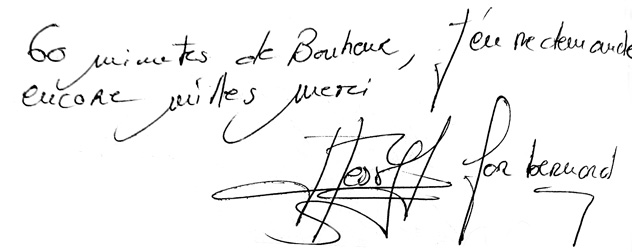 60 minutes de Bonheur, j'en redemande
encore milles merci
for bernard